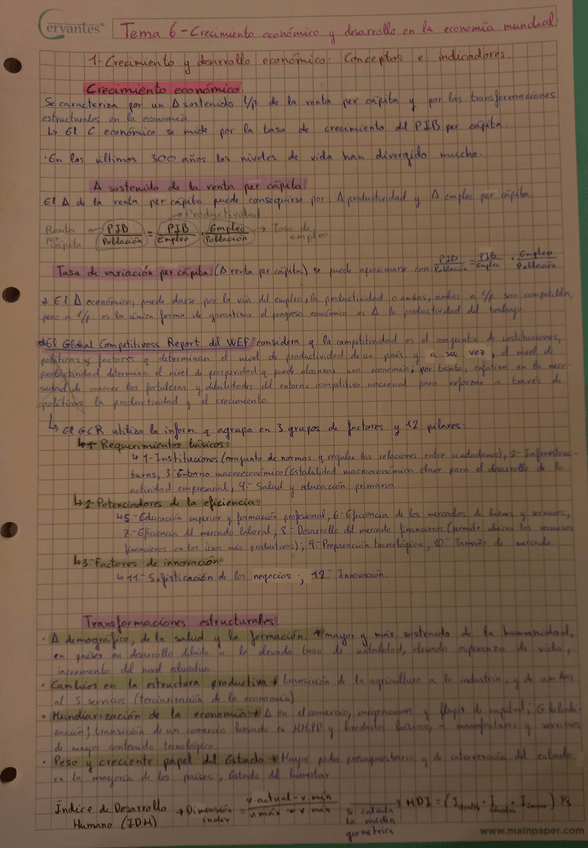 Cervantes
Tema 6 - Crecimiento económico y desarrollo en la economía mundial.
1- Crecimiento y desarrollo económico: Conceptos e indicadores.
Crecimiento económico.
Se caracteriza por un Δ sostenido l/p de la renta per cápita y por las transformaciones
estructurales en la economía
↳ El C. económico se mide por la tasa de crecimiento del PIB per cápita.
· En los últimos 300 años los niveles de vida han divergido mucho.
Δ sostenido de la renta per cápita:
El Δ de la renta per cápita puede conseguirse por Δ productividad y Δ empleo per cápita.
→ Productividad
Renta per cápita ← PIB/Población = PIB/Empleo · Empleo/Población → Tasa de empleo
Tasa de variación per cápita: (Δ renta per cápita) se puede aproximarse con: PIB/Población = PIB/Empleo · Empleo/Población
El Δ económico, puede darse por la vía del empleo, la productividad o ambas, ambas a c/p son compatibles,
pero a l/p es la única forma de garantizar el progreso económico es Δ la productividad del trabajo.
El Global Competitivess Report del WEF considera q la competitividad es el conjunto de instituciones,
políticas y factores q determinan el nivel de productividad de un país, y a su vez, el nivel de
productividad determina el nivel de prosperidad q puede alcanzar una economía; por tanto, enfatiza en la nece-
sidad de conocer las fortalezas y debilidades del entorno competitivo nacional para reforzar a través de
políticas la productividad y el crecimiento.
↳ El GCR utiliza la inform. q agrupa en 3 grupos de factores y 12 pilares:
↳ 1- Requerimientos básicos:
↳ 1- Instituciones (conjunto de normas q regulan las relaciones entre ciudadanos), 2- Infraestruc-
turas, 3- Entorno macroeconómico (Estabilidad macroeconómica clave para el desarrollo de la
actividad empresarial, 4- Salud y educación primaria
↳ 2- Potenciadores de la eficiencia:
↳ 5- Educación superior y formación profesional; 6- Eficiencia de los mercados de bienes y servicios,
7- Eficiencia del mercado laboral, 8- Desarrollo del mercado financiero (permite los recursos
financieros en los usos más productivos); 9- Preparación tecnológica, 10- Tamaño de mercado
↳ 3- Factores de innovación:
↳ 11- Sofisticación de los negocios; 12- Innovación
Transformaciones estructurales:
· Δ demográfico, de la salud y la formación → mayor y más sostenido de la humanidad,
en países en desarrollo debido a la elevada tasa de natalidad, elevada esperanza de vida,
incremento del nivel educativo
· Cambios en la estructura productiva → transición de la agricultura a la industria, y de ambas
al S. servicios (terciarización de la economía)
· Mundialización de la economía → Δ en el comercio, migraciones y flujos de capital; Globali-
zación; transición de un comercio basado en MMPP y productos básicos, a manufacturas y servicios
de mayor contenido tecnológico
· Peso y creciente papel del Estado → Mayor poder presupuestario y de intervención del estado
en la mayoría de los países, Estado del bienestar
Índice de Desarrollo Humano (IDH) → Dimensión index = v. actual - v. mín / v. máx - v. mín
se calcula la media geométrica → HDI = (I · I · I) 1/3
www.mainpaper.com